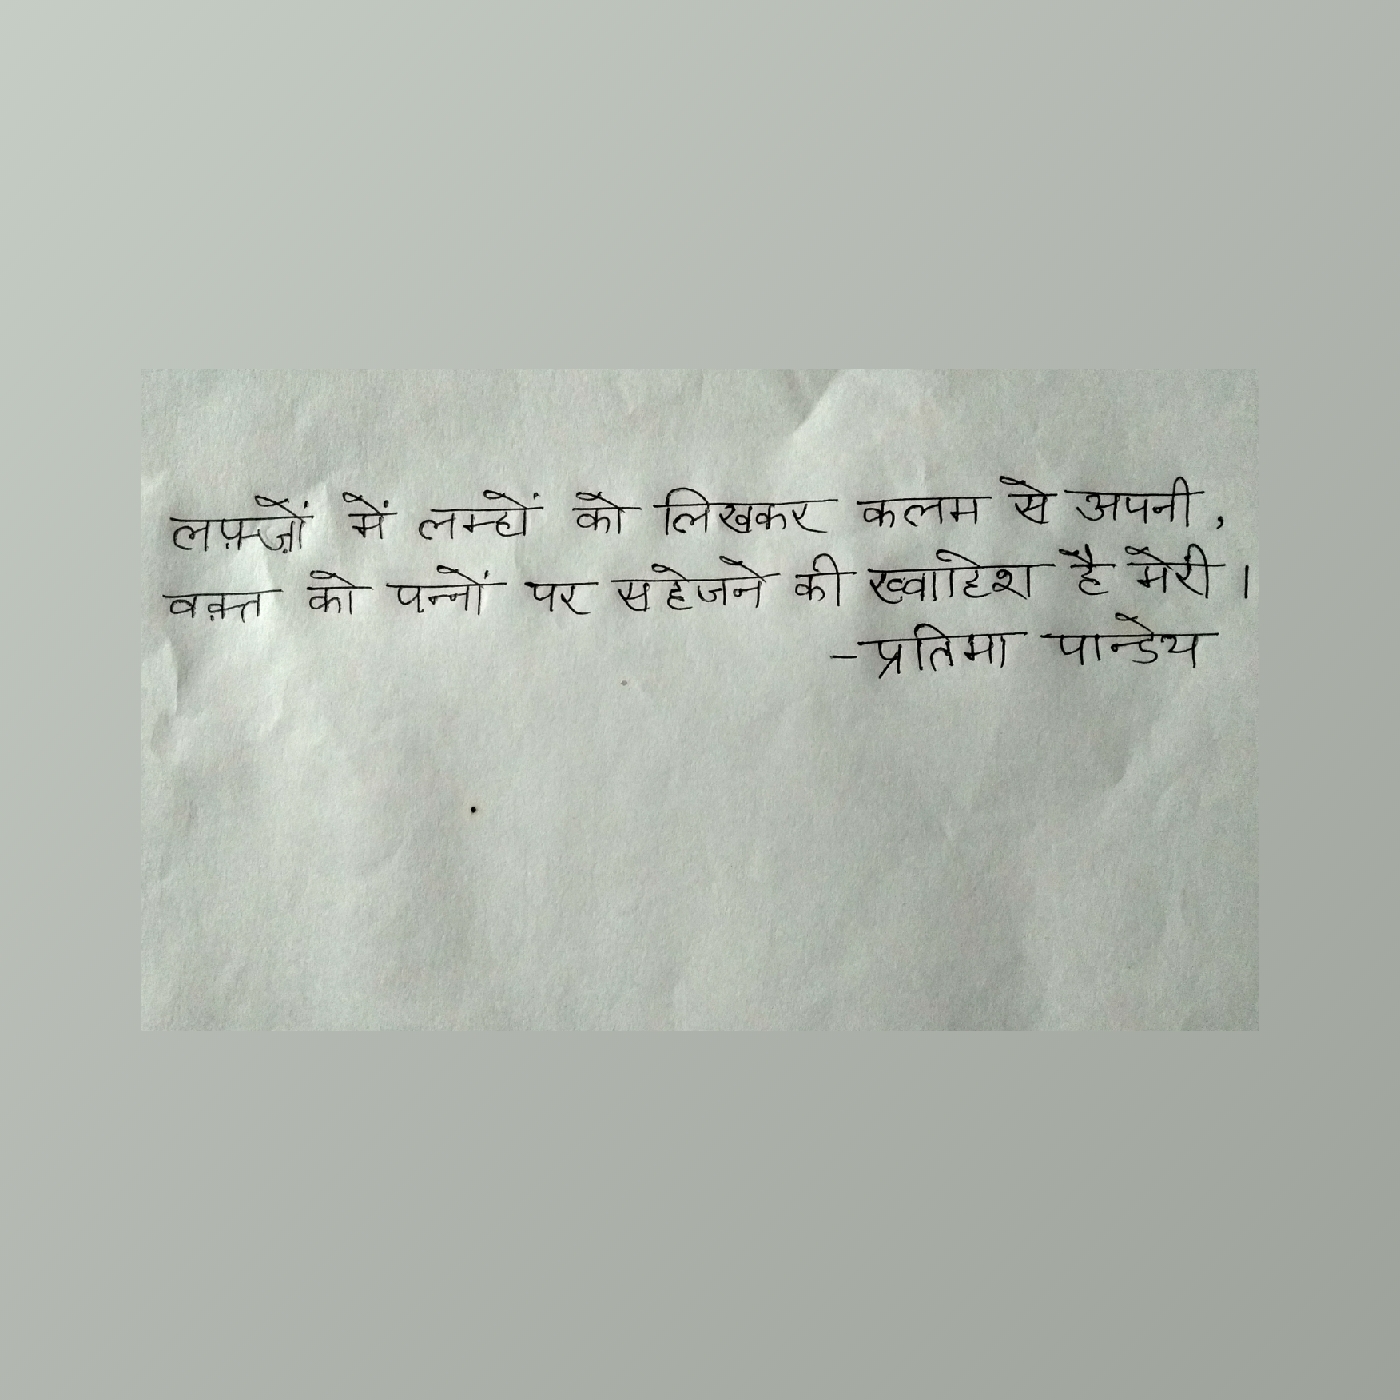 लफ़्ज़ों में लम्हों को लिखकर कलम से अपनी,
वक़्त को पन्नों पर सहेजने की ख्वाहिश है मेरी।
-प्रतिमा पान्डेय